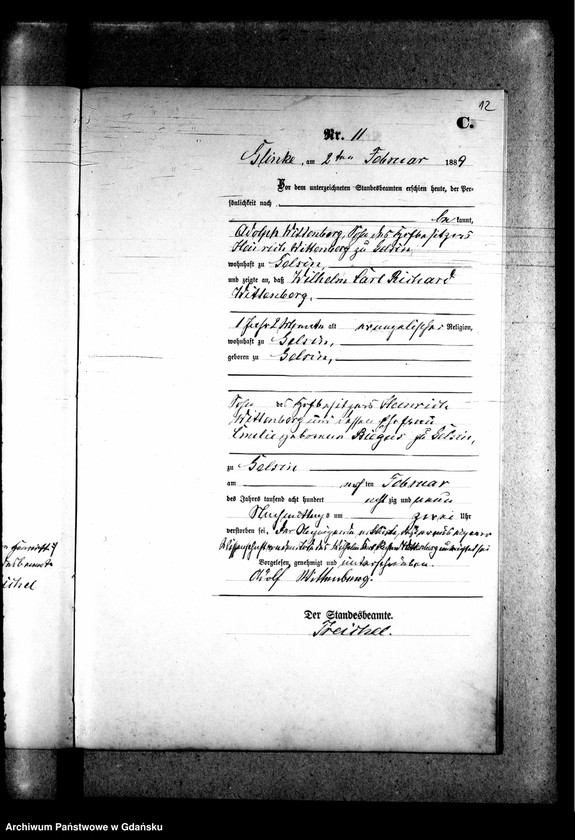 12
C.
Nr. 11
Glinke, am 2ten Februar 1889
Vor dem unterzeichneten Standesbeamten erschien heute, der Per-
sönlichkeit nach
be kannt,
Adolph Wittenberg, Sohn des Hofbesitzers
Heinrich Wittenberg zu Gelsin,
wohnhaft zu Gelsin,
und zeigte an, daß Wilhelm Carl Richard
Wittenberg,
1 Jahr 2 Monate alt evangelischer Religion,
wohnhaft zu Gelsin,
geboren zu Gelsin,
Sohn des Hofbesitzers Heinrich
Wittenberg und dessen Ehefrau
Emilie geborenen zu Gelsin,
zu Gelsin
am ten Februar
des Jahres tausend acht hundert acht zig und neun
Nachmittags um zwei Uhr
verstorben sei, der aus eigener
Wissenschaft von dem Tode des Wilhelm Carl Richard Wittenberg unterrichtet sei
Vorgelesen, genehmigt und unterschrieben.
Adolf Wittenberg.
Der Standesbeamte.
Treichel.
Archiwum Państwowe w Gdańsku